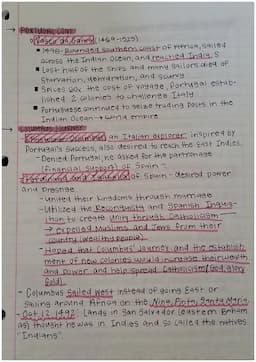 Portugal cont.
○ Vasco da Gama (1469-1525)
▪ 1498- Rounded southern coast of Africa, sailed
across the Indian Ocean, and reached India, S
▪ Lost half of the ships and many sailors died of
starvation, dehydration, and scurvy
▪ Spices 60x the cost of voyage, Portugal estab-
lished 2 colonies to challenge Italy
▪ Portuguese continued to seize trading posts in the
Indian Ocean → world empire
Columbus
an Italian explorer, inspired by
Portugal's success, also desired to reach the East Indies.
- Denied Portugal, he asked for the patronage
(financial support) of Spain -
Ferdinand and Isabella of Spain - desired power
and prestige
- United their kingdoms through marriage
- Utilized the Reconquista and Spanish Inquisi-
tion to create unity through Catholicism
→ expelled Muslims and Jews from their
country (wealthy people)
- Hoped that Columbus' journey and the establish
ment of new colonies would increase their wealth
and power and help spread Catholicism (God, glory
gold).
- Columbus sailed West instead of going East or
sailing around Africa on the Nina, Pinta, Santa Maria
- Oct 12, 1492: Lands in San Salvador (eastern Baham
as) thought he was in Indies and so called the natives
"Indians".